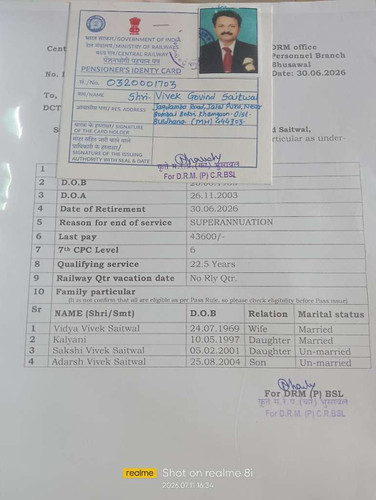 भारत सरकार/GOVERNMENT OF INDIA
रेल मंत्रालय/MINISTRY OF RAILWAYS
मध्य रेल/CENTRAL RAILWAY
पेंशनभोगी पहचान पत्र
PENSIONER'S IDENTY CARD
सं./No. 0320001703
नाम/NAME Shri. Vivek Govind Saitwal
आवासीय पता/RES. ADDRESS Jagdamba Road, Jalal Pura, Near
Buldhana. (MH) 444303.
SIGNATURE OF THE CARD HOLDER
SIGNATURE OF THE ISSUING AUTHORITY WITH SEAL & DATE
For D.R.M. (P) C.R.BSL
DRM office
Personnel Branch
Bhusawal
Date: 30.06.2026
To,
DCT
Saitwal,
particular as under-
1
2 D.O.B
3 D.O.A 26.11.2003
4 Date of Retirement 30.06.2026
5 Reason for end of service SUPERANNUATION
6 Last pay 43600/-
7 7th CPC Level 6
8 Qualifying service 22.5 Years
9 Railway Qtr vacation date No Rly Qtr.
10 Family particular
(It is not confirm that all are eligible as per Pass Rule, so please check eligibility before Pass issue)
Sr NAME (Shri/Smt) D.O.B Relation Marital status
1 Vidya Vivek Saitwal 24.07.1969 Wife Married
2 Kalyani 10.05.1997 Daughter Married
3 Sakshi Vivek Saitwal 05.02.2001 Daughter Un-married
4 Adarsh Vivek Saitwal 25.08.2004 Son Un-married
For DRM (P) BSL
For D.R.M. (P) C.R.BSL
realme Shot on realme 8i
2026.07.11 16:34